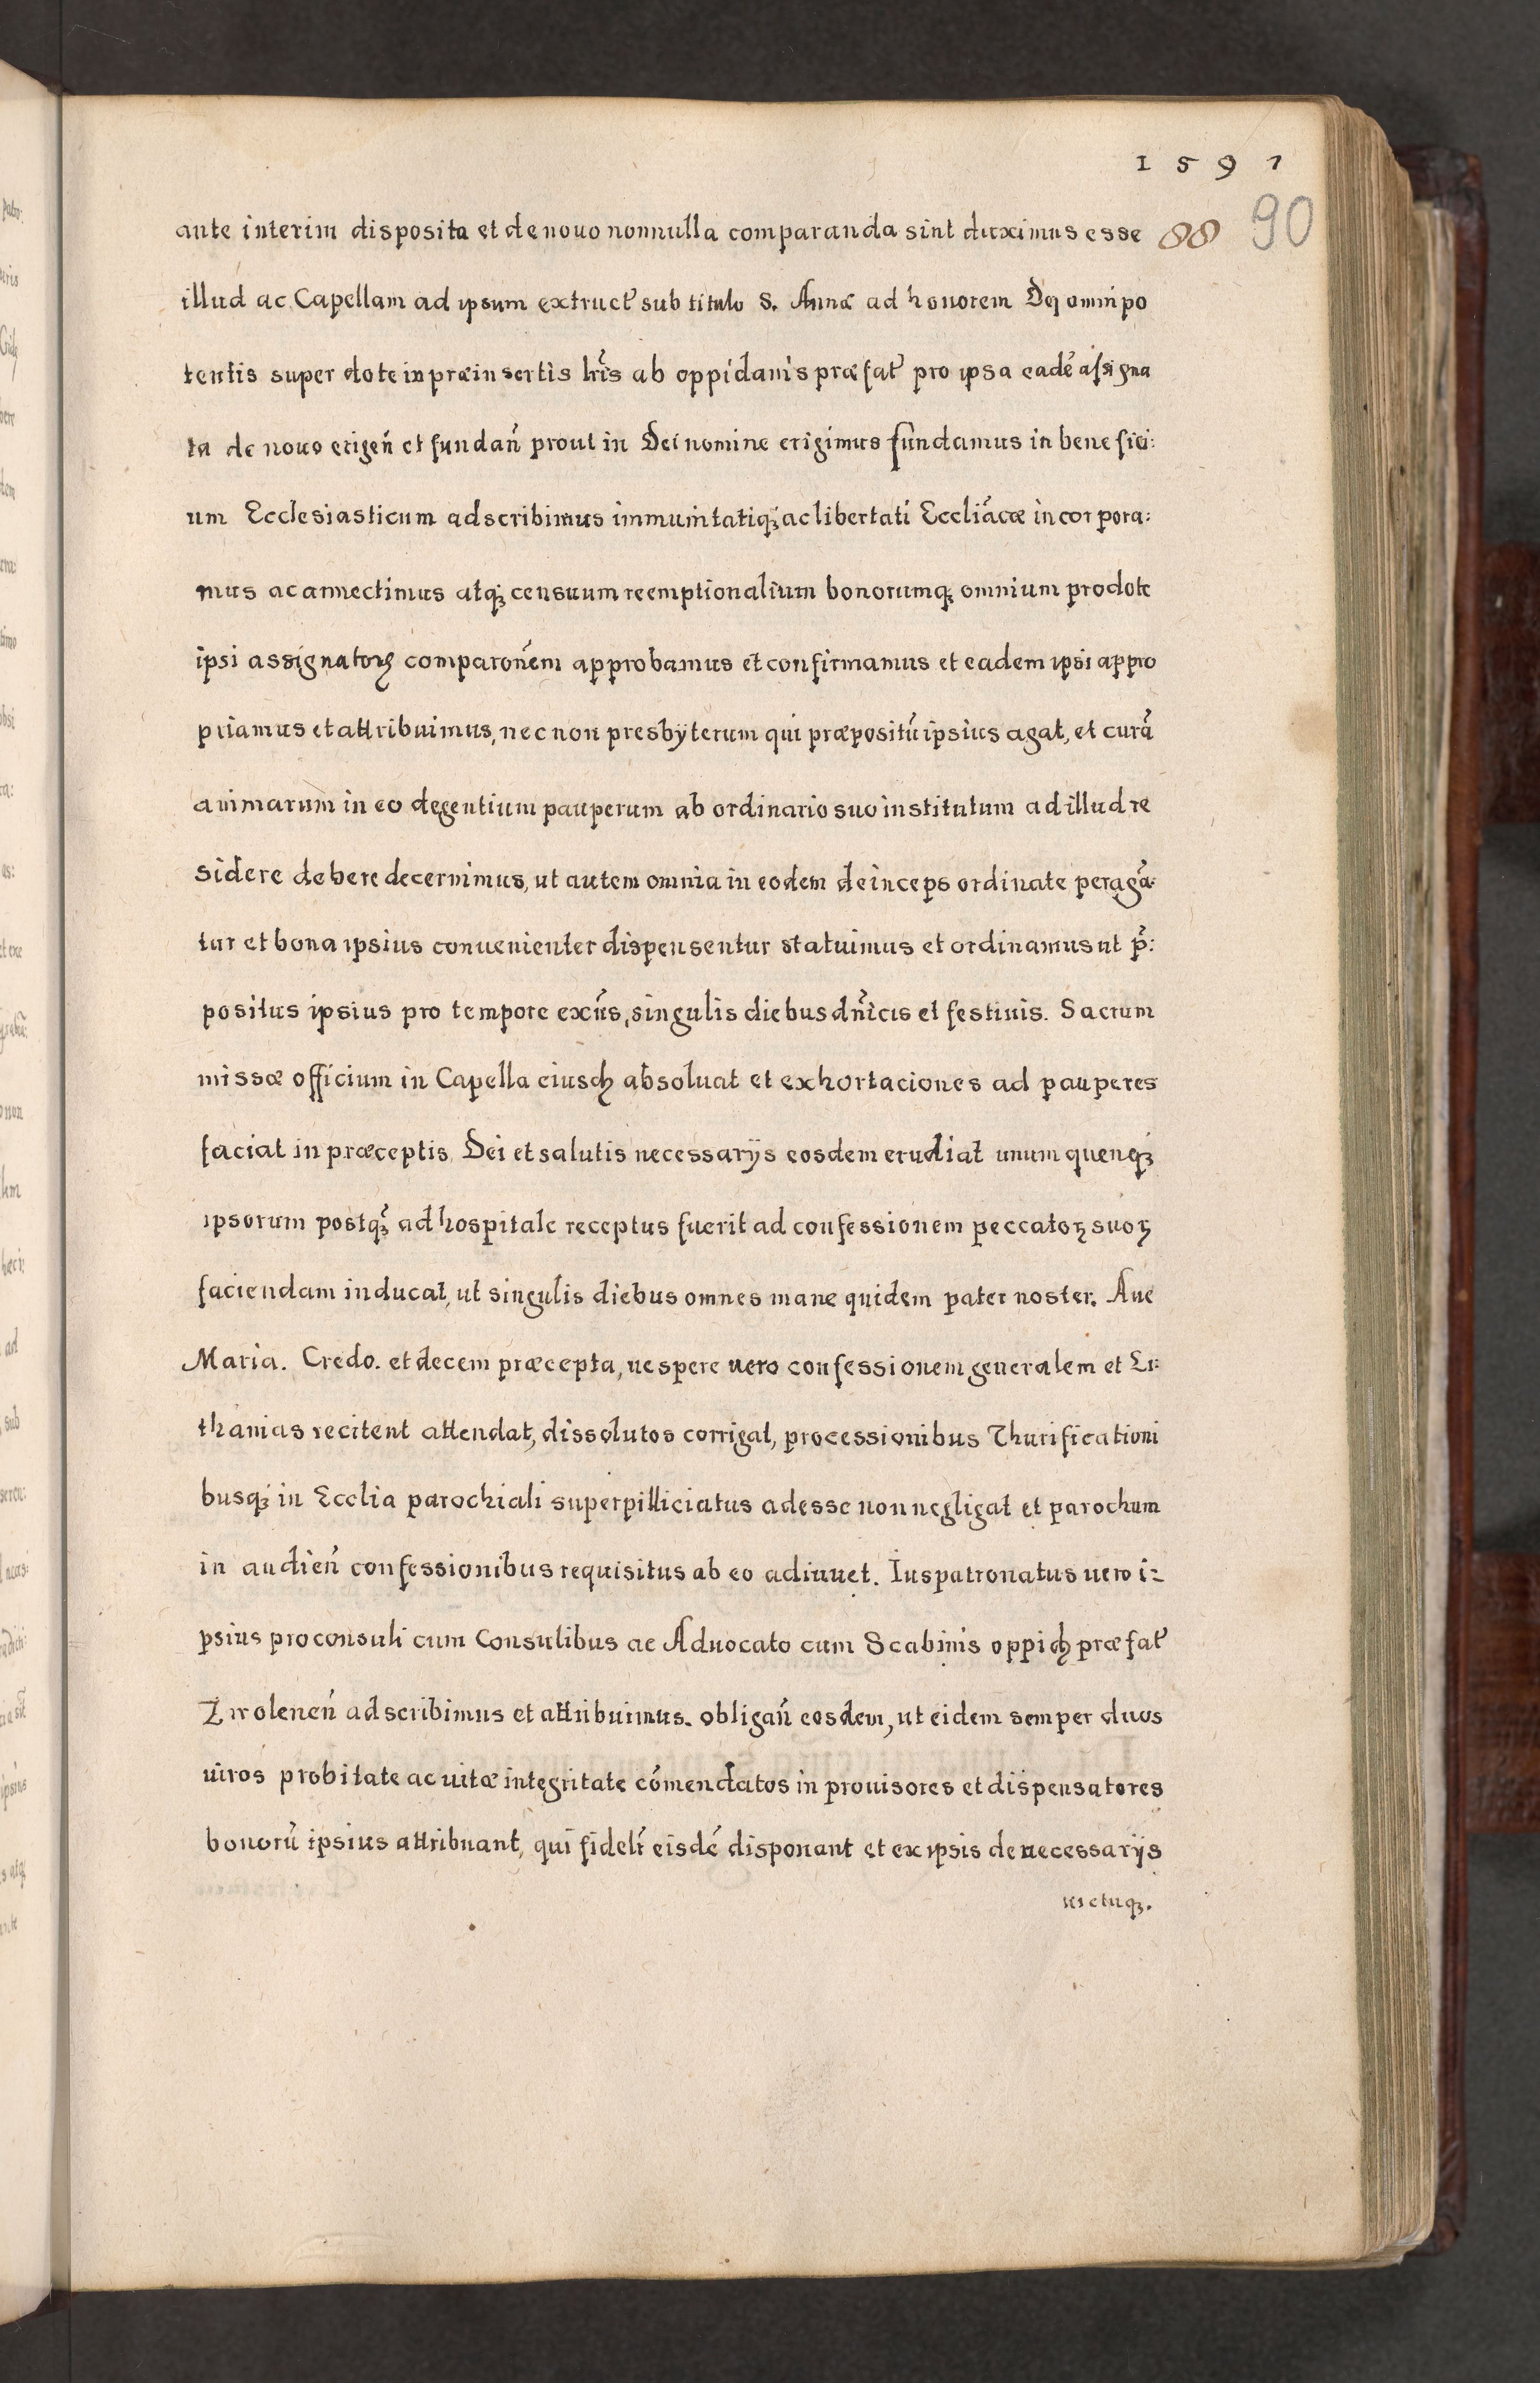 1591
88 90
ante interim disposita et de nouo nonnulla comparanda sint duximus esse
illud ac Capellam ad ipsum extruct̃ sub titulo S. Annæ ad honorem Dei omnipo
tentis super dote in præinsertis lrĩs ab oppidanis præfat̃ pro ipsa eadẽ assigna
ta de nouo erigeñ et fundañ prout in Dei nomine erigimus fundamus in benefici:
um Ecclesiasticum adscribimus immunitatiqꝫ ac libertati Eccliãcæ incorpora:
mus ac annectimus atqꝫ censuum reemptionalium bonorumqꝫ omnium pro dote
ipsi assignatoꝝ comparoñem approbamus et confirmamus et eadem ipsi appro
priamus et attribuimus, nec non presbyterum qui præpositũ ipsius agat, et curã
animarum in eo degentium pauperum ab ordinario suo institutum ad illud re
sidere debere decernimus, ut autem omnia in eodem deinceps ordinate peragã:
tur et bona ipsius conuenienter dispensentur statuimus et ordinamus ut p̃:
positus ipsius pro tempore exñs, singulis diebus dñicis et festiuis. Sacrum
missæ officium in Capella eiusdꝫ absoluat et exhortaciones ad pauperes
faciat in præceptis Dei et salutis necessarijs eosdem erudiat unum quenqꝫ
ipsorum postqꝫ̃ ad hospitale receptus fuerit ad confessionem peccatoꝝ suoꝝ
faciendam inducat, ut singulis diebus omnes mane quidem pater noster. Aue
Maria. Credo. et decem præcepta, uespere uero confessionem generalem et Li:
thanias recitent attendat, dissolutos corrigat, processionibus Thurificationi
busqꝫ in Ecclia parochiali superpilliciatus adesse non negligat et parochum
in audieñ confessionibus requisitus ab eo adiuuet. Iuspatronatus uero i:
psius proconsuli cum Consulibus ac Aduocato cum Scabinis oppidꝫ præfat̃
Zwoleneñ adscribimus et attribuimus. obligañ eosdem, ut eidem semper duos
uiros probitate ac uitæ integritate cõmendatos in prouisores et dispensatores
bonorũ ipsius attribuant, qui fidelr̃ eisdẽ disponant et ex ipsis de necessarijs
uictuqꝫ.